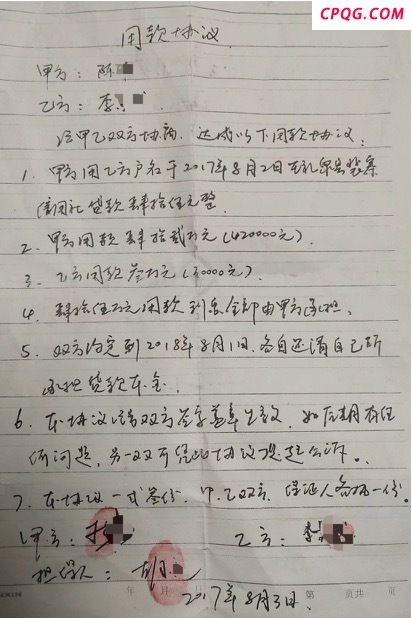 CPQG.COM
用款协议
甲方：陈
乙方：李
经甲乙双方协商，达成以下用款协议：
1、甲方用乙方户名于2017年8月2日在
信用社贷款肆拾伍元整。
2、甲方用款肆拾贰万元（420000元）。
3、乙方用款叁万元（30000元）
4、肆拾伍万元用款利息全部由甲方承担。
5、双方约定到2018年8月1日，各自还清自己所
承担贷款本金。
6、本协议经双方签字盖章生效，如后期有任
何问题，另一双可凭此协议提起公诉。
7、本协议一式叁份，甲、乙双方、保证人各执一份。
甲方： 乙方：李
担保人：
年 月 第 页共 页
2017年8月3日.
XIN